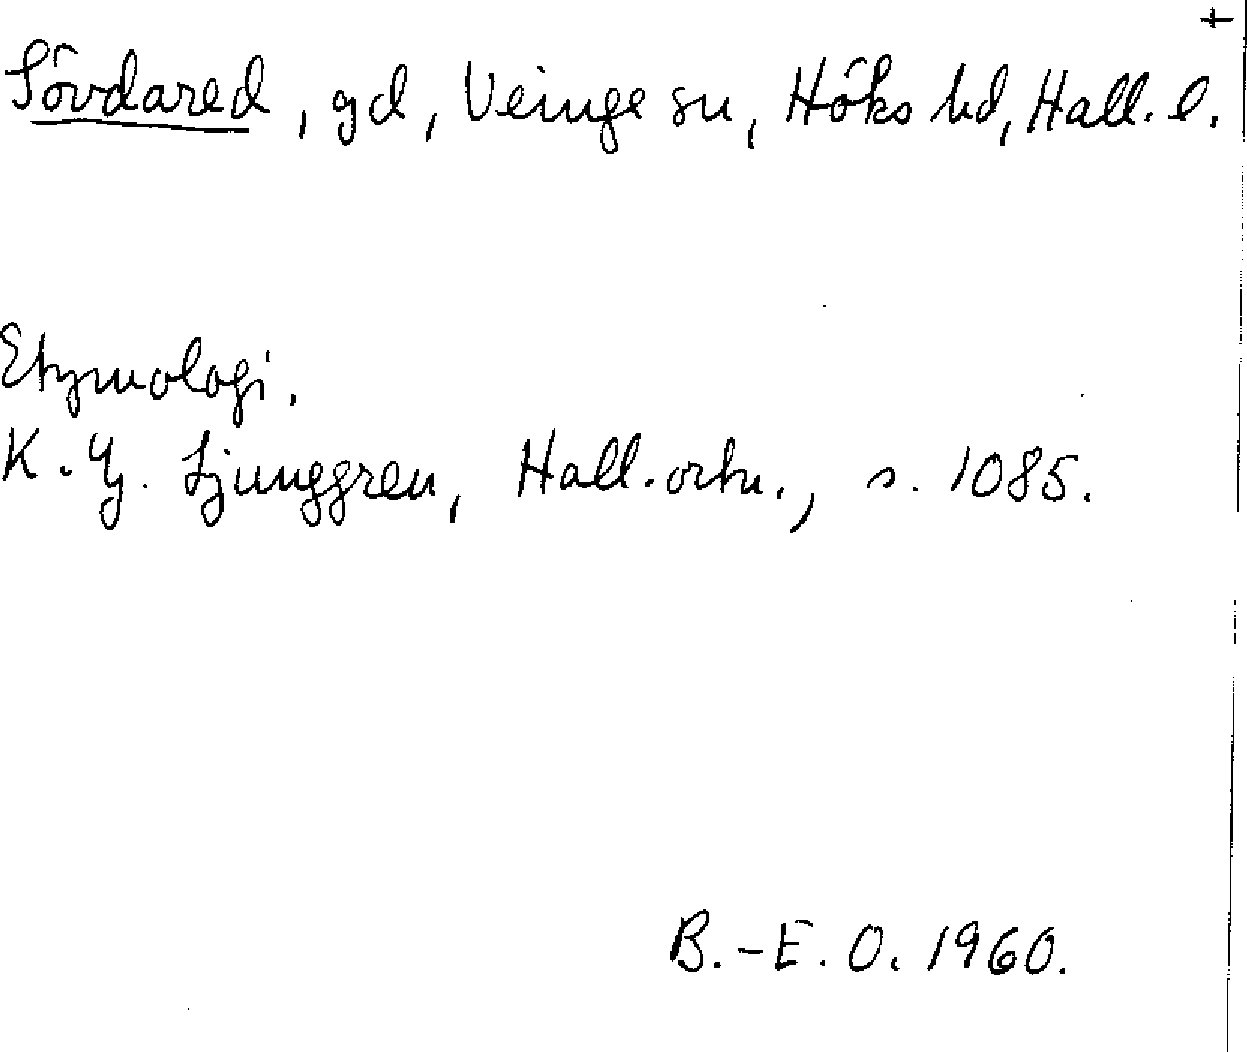 +
Sövdared, gd, Veinge sn, Höks hd, Hall. l.
Etymologi.
K. G. Ljunggren, Hall. ortn., s. 1085.
B.-E. O. 1960.